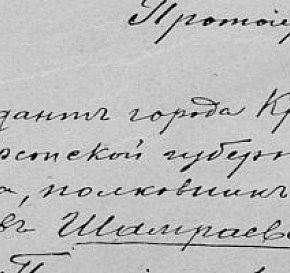 Протоіер
дантъ города Кр
рсонской губерн
а, полковникъ
въ Шамраев